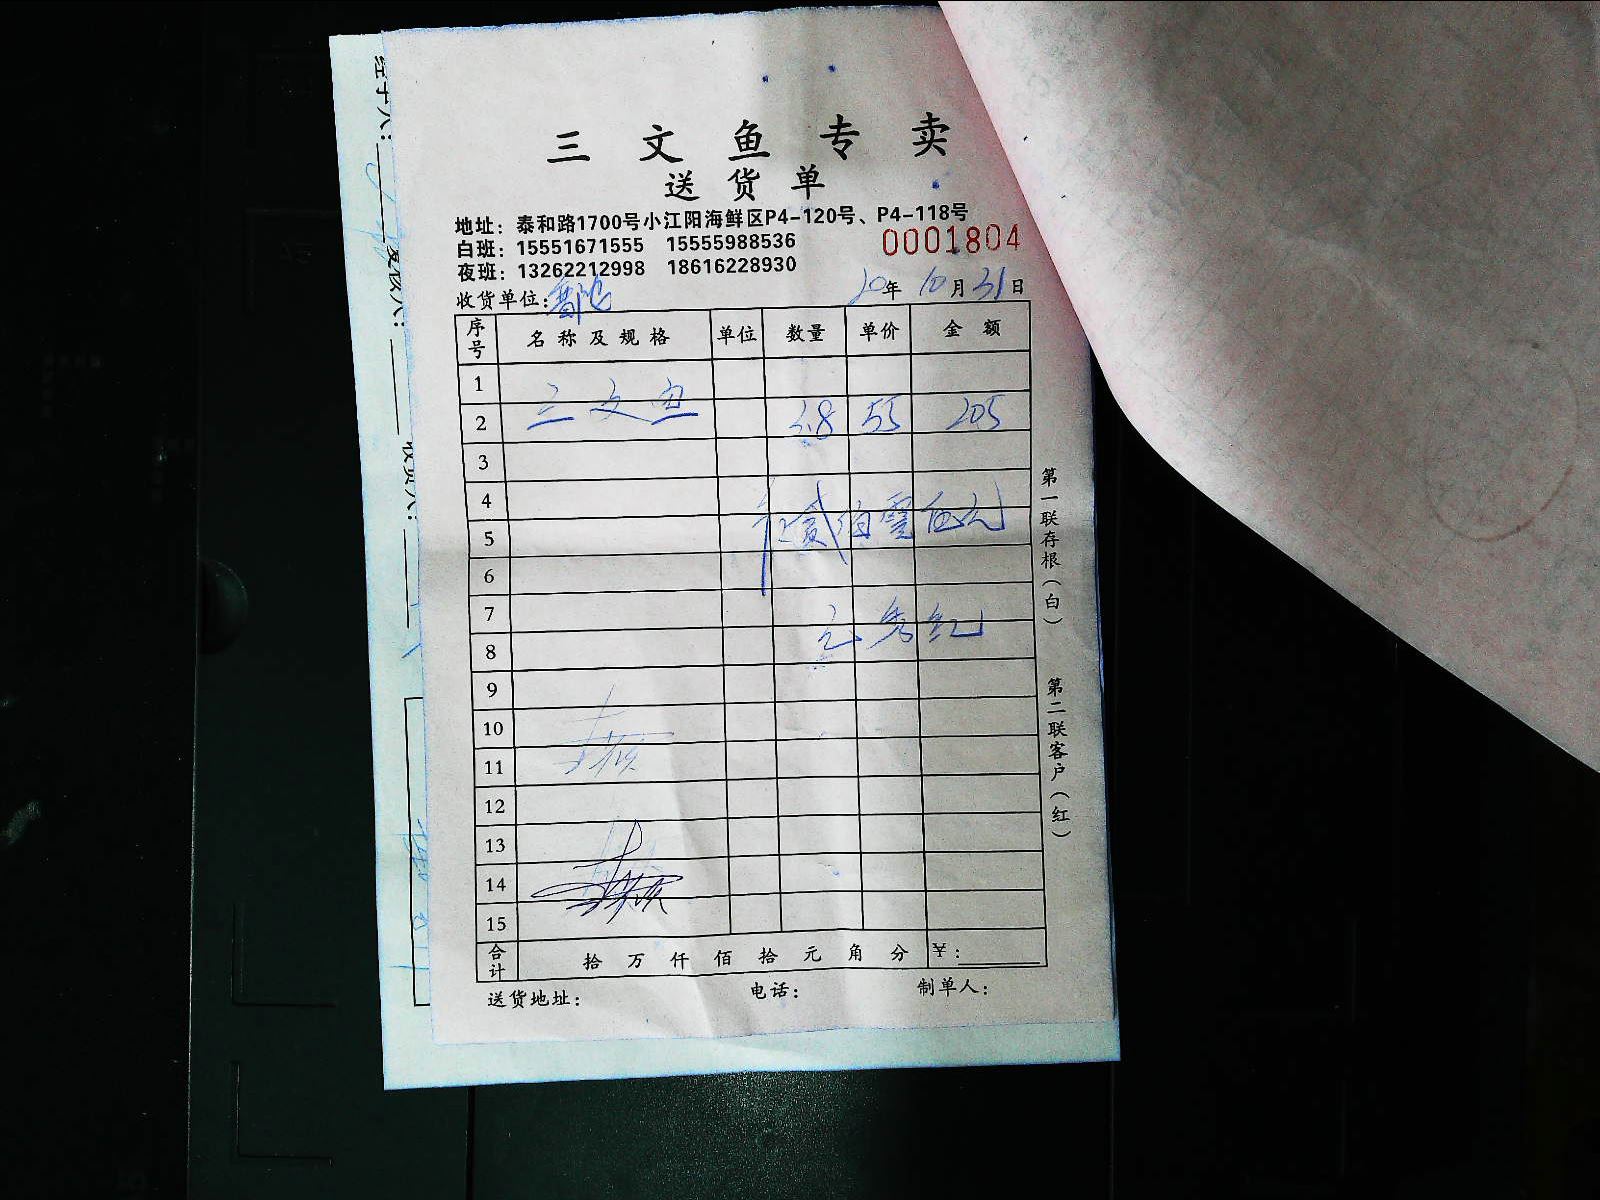 三文鱼专卖
送货单
地址：泰和路1700号小江阳海鲜区P4-120号、P4-118号
白班：15551671555 15555988536
0001804
夜班：13262212998 18616228930
收货单位：
20年10月31日
序号 名称及规格 单位 数量 单价 金额
1
2 三文鱼 3.8 55 205
3
4
5 贰佰零伍元
6
7
8 秀红
9
10
11
12
13
14
15
合计 拾万仟佰拾元角分 ￥：
送货地址： 电话： 制单人：
第一联存根（白）
第二联客户（红）
经手人：
收货人：